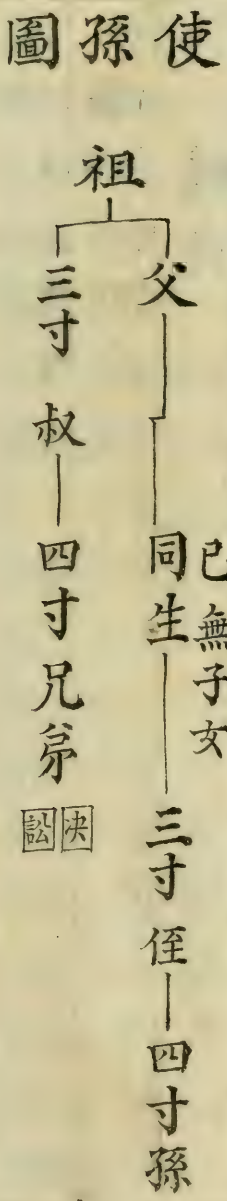 使孫圖
祖
己無子女
父 同生 三寸侄 四寸孫
三寸叔 四寸兄弟 决訟